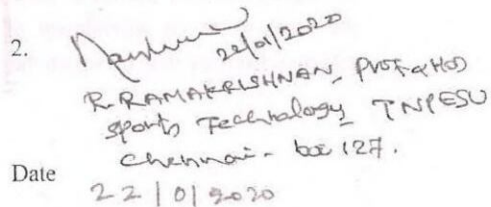 2.
22/01/2020
R. RAMAKRISHNAN, Prof & HOD
Sports Technology, TNPESU
Chennai - 600 127.
Date
22/01/2020